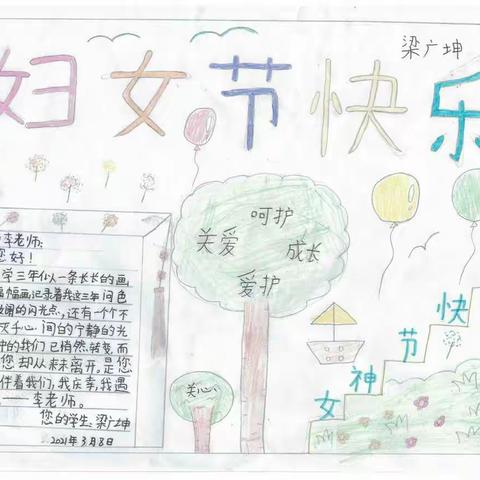 妇女节快乐
梁广坤
呵护
关爱
成长
爱护
关心
女神节快
李老师:
您好!
学三年似一条长长的画
幅画记录着我这三年间色
斓的闪光点,还有一个个
心间的宁静的光
的我们已悄然转变,而
您却从未离开,是您
伴着我们,我庆幸,我遇
——李老师。
您的学生:梁广坤
2021年3月8日